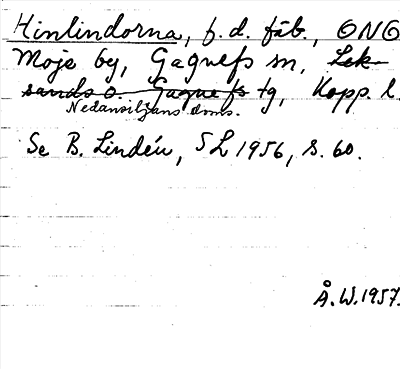 Hinlindorna, f.d. fäb., ONO
Moje by, Gagnefs sn, Lek-
sands o. Gagnefs tg, Kopp. l.
Nedansiljans doms.
Se B. Lindén, SL 1956, s. 60.
Å.W. 1957.